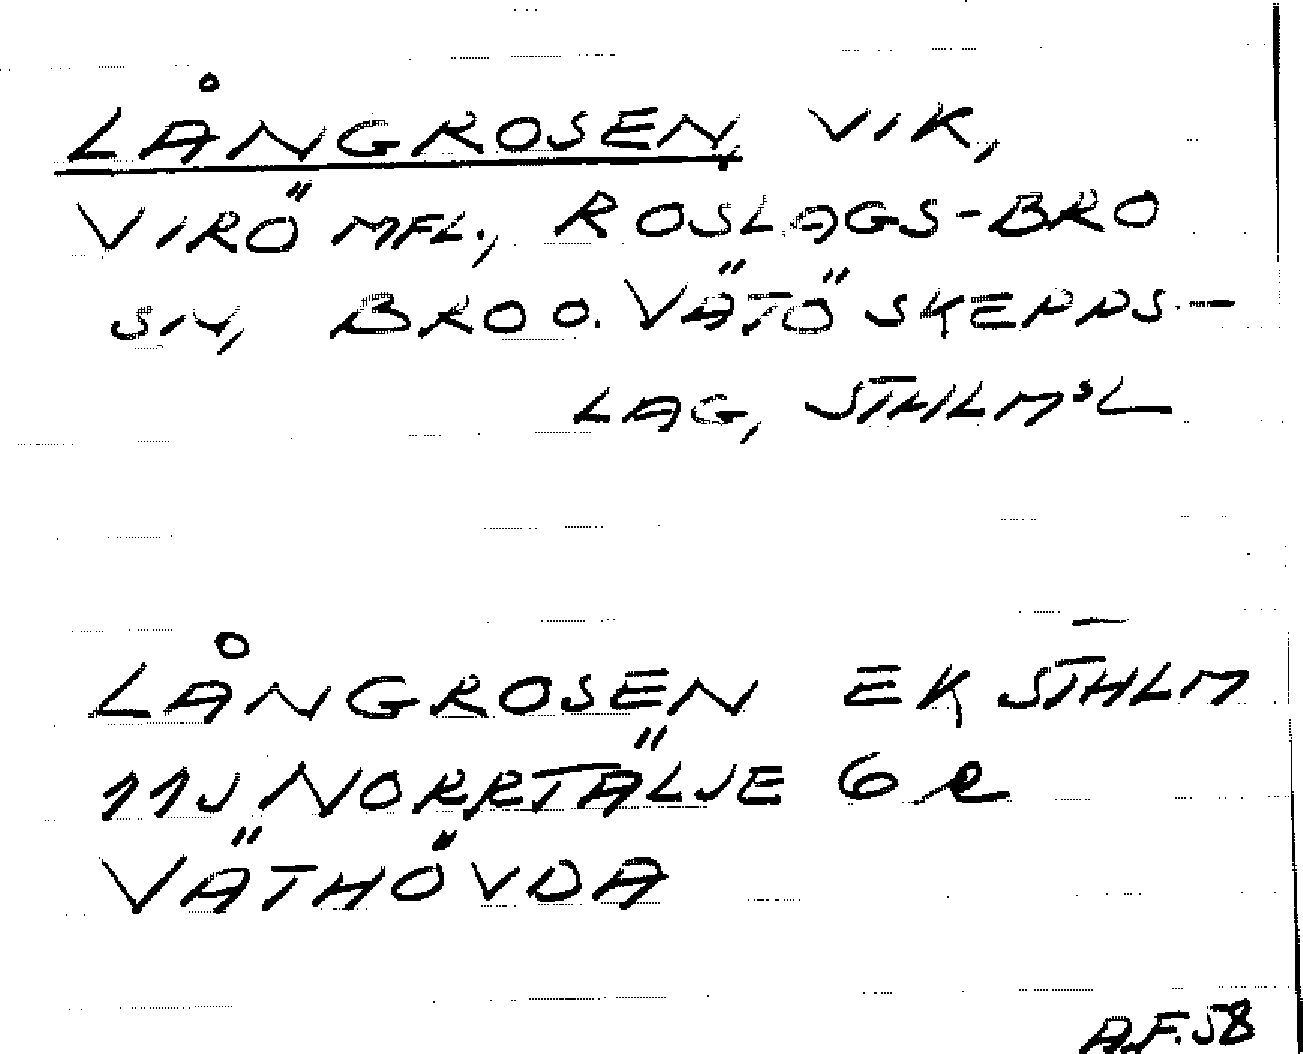 LÅNGROSEN, VIK,
VIRÖ MFL., ROSLAGS-BRO
SN, BRO O. VÄTÖ SKEPPS-
LAG, STHLMS L
LÅNGROSEN EK STHLM
11J NORRTÄLJE 6 R
VÄTHÖVDA
A.F.58